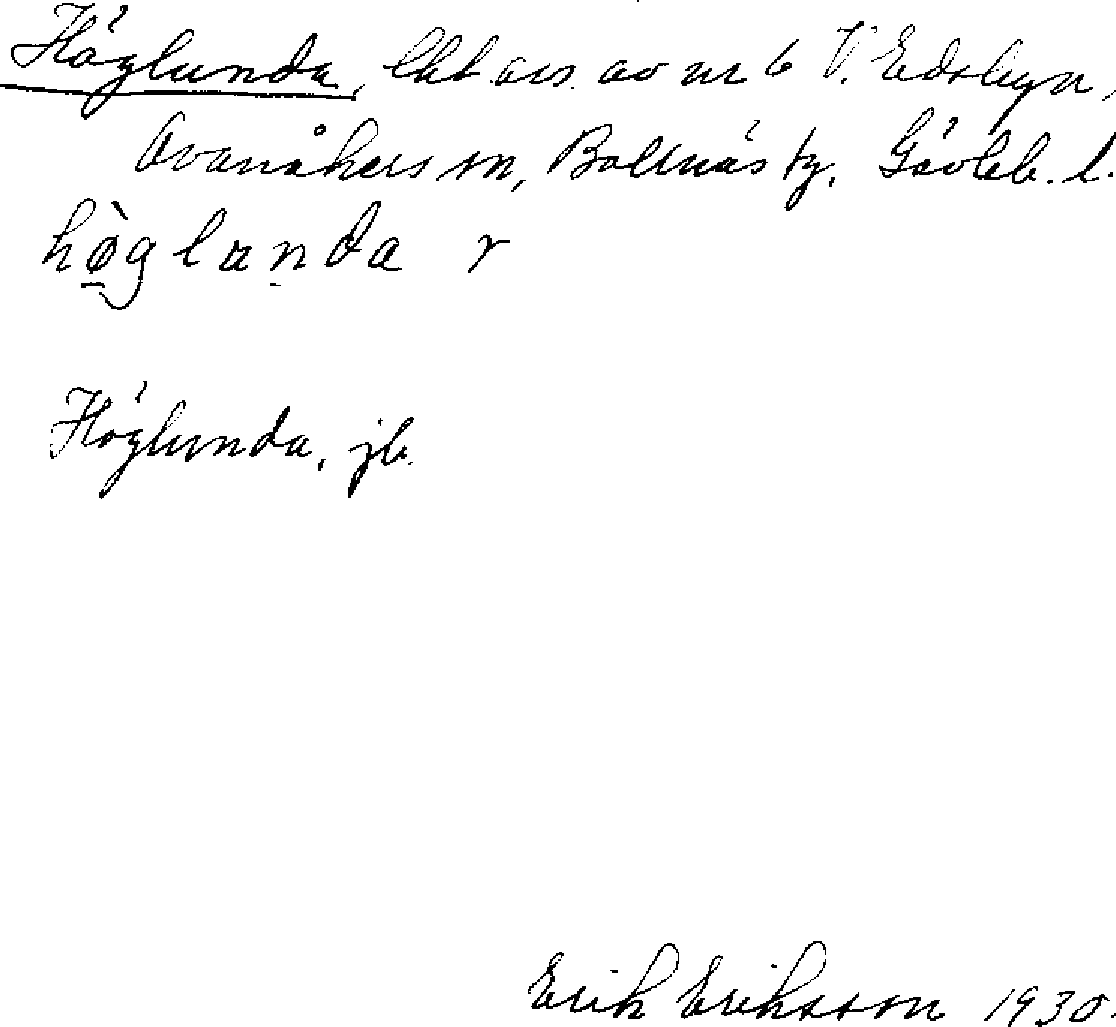 Höglunda, lht avs. av nr 6 V. Edsbyn,
Ovanåkers sn, Bollnäs tg, Gävleb. l.
hø̀glanda r
Höglunda, jb.
Erik Eriksson 1930.